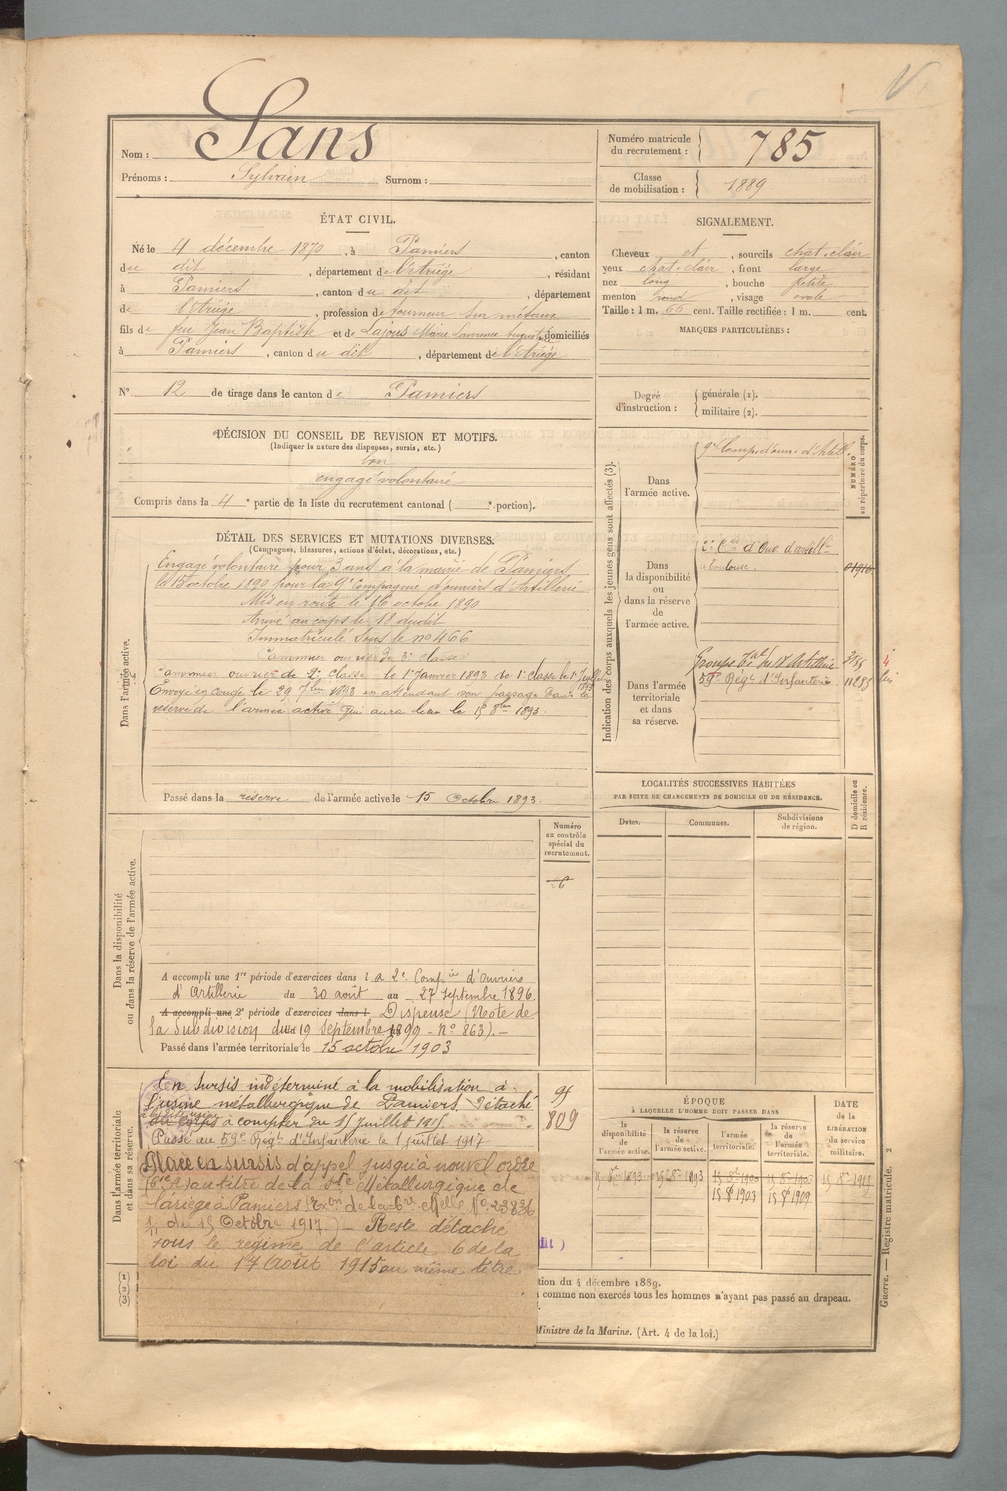 Nom : Sans
Prénoms : Sylvain Surnom :
Numéro matricule du recrutement : 785
Classe de mobilisation : 1889
ÉTAT CIVIL.
Né le 4 décembre 1870, à Pamiers, canton
du dit, département de l'Ariège, résidant
à Pamiers, canton du dit, département
de l'Ariège, profession de tourneur sur métaux
fils de feu Jean Baptiste et de Lajous Marie Laurence domiciliés
à Pamiers, canton du dit, département de l'Ariège
N° 12 de tirage dans le canton de Pamiers
SIGNALEMENT.
Cheveux et, sourcils chat. clair
yeux chat. clair, front large
nez long, bouche petite
menton rond, visage ovale
Taille : 1 m. 66 cent. Taille rectifiée : 1 m. cent.
MARQUES PARTICULIÈRES :
Degré d'instruction : générale (1).
militaire (2).
DÉCISION DU CONSEIL DE REVISION ET MOTIFS.
(Indiquer la nature des dispenses, sursis, etc.)
bon
engagé volontaire
Compris dans la 4e partie de la liste du recrutement cantonal ( e portion).
DÉTAIL DES SERVICES ET MUTATIONS DIVERSES.
(Campagnes, blessures, actions d'éclat, décorations, etc.)
Dans l'armée active.
Engagé volontaire pour 3 ans à la mairie de Pamiers
le 15 octobre 1890 pour la 9e Compagnie d'ouvriers d'Artillerie
Mis en route le 16 octobre 1890
Arrivé au corps le 18 dudit
Immatriculé sous le no 466
Canonnier ouvrier de 3e classe
Canonnier ouvrier de 2e classe le 1er Janvier 1893 de 1e classe le 1er
1893
Envoyé en congé le 29 7bre 1893 en attendant son passage dans la
réserve de l'armée active qui aura lieu le 15 8bre 1893.
Passé dans la réserve de l'armée active le 15 Octobre 1893.
Indication des corps auxquels les jeunes gens sont affectés (3).
NUMÉRO au répertoire du corps.
Dans l'armée active.
9e Comp. d'ouv. d'Artill.
Dans la disponibilité ou dans la réserve de l'armée active.
2e Cie d'Ouv. d'artill.
à Toulouse.
Dans l'armée territoriale et dans sa réserve.
59e Régt d'Infanterie
LOCALITÉS SUCCESSIVES HABITÉES
PAR SUITE DE CHANGEMENTS DE DOMICILE OU DE RÉSIDENCE.
Dates. Communes. Subdivisions de région. D domicile ou R résidence.
Dans la disponibilité ou dans la réserve de l'armée active.
Numéro au contrôle spécial du recrutement.
A accompli une 1re période d'exercices dans la 2e Compie d'Ouvriers
d'Artillerie du 30 août au 27 Septembre 1896.
A accompli une 2e période d'exercices dans l Dispensé (Note de
la Subdivision du 19 Septembre 1899 - No 863). -
Passé dans l'armée territoriale le 15 octobre 1903
Dans l'armée territoriale et dans sa réserve.
En sursis indéterminé à la mobilisation à
l'usine métallurgique de Pamiers. Détaché
à compter du 15 Juillet 1915.
Passé au 59e Régt d'Infanterie le 1 juillet 1917
809
Placé en sursis d'appel jusqu'à nouvel ordre
au titre de la Sté Métallurgique de
l'ariège à Pamiers
du 15 Octobre 1917.) - Reste détaché
sous le régime de l'article 6 de la
loi du 17 Août 1915 au même titre
ÉPOQUE
À LAQUELLE L'HOMME DOIT PASSER DANS
la disponibilité de l'armée active. la réserve de l'armée active. l'armée territoriale. la réserve de l'armée territoriale.
DATE de la LIBÉRATION du service militaire.
15 8bre 1893 15 8bre 1893
15 8bre 1903 15 8bre 1909
tion du 4 décembre 1889.
comme non exercés tous les hommes n'ayant pas passé au drapeau.
Ministre de la Marine. (Art. 4 de la loi.)
Guerre. — Registre matricule. 2